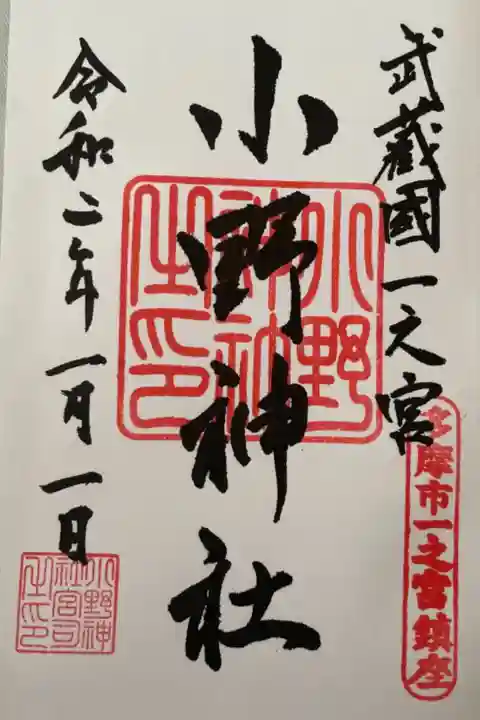 武蔵國一之宮
多摩市一之宮鎮座
小野神社
小野
神社
之印
令和二年一月一日
小野神
社宮司
之印